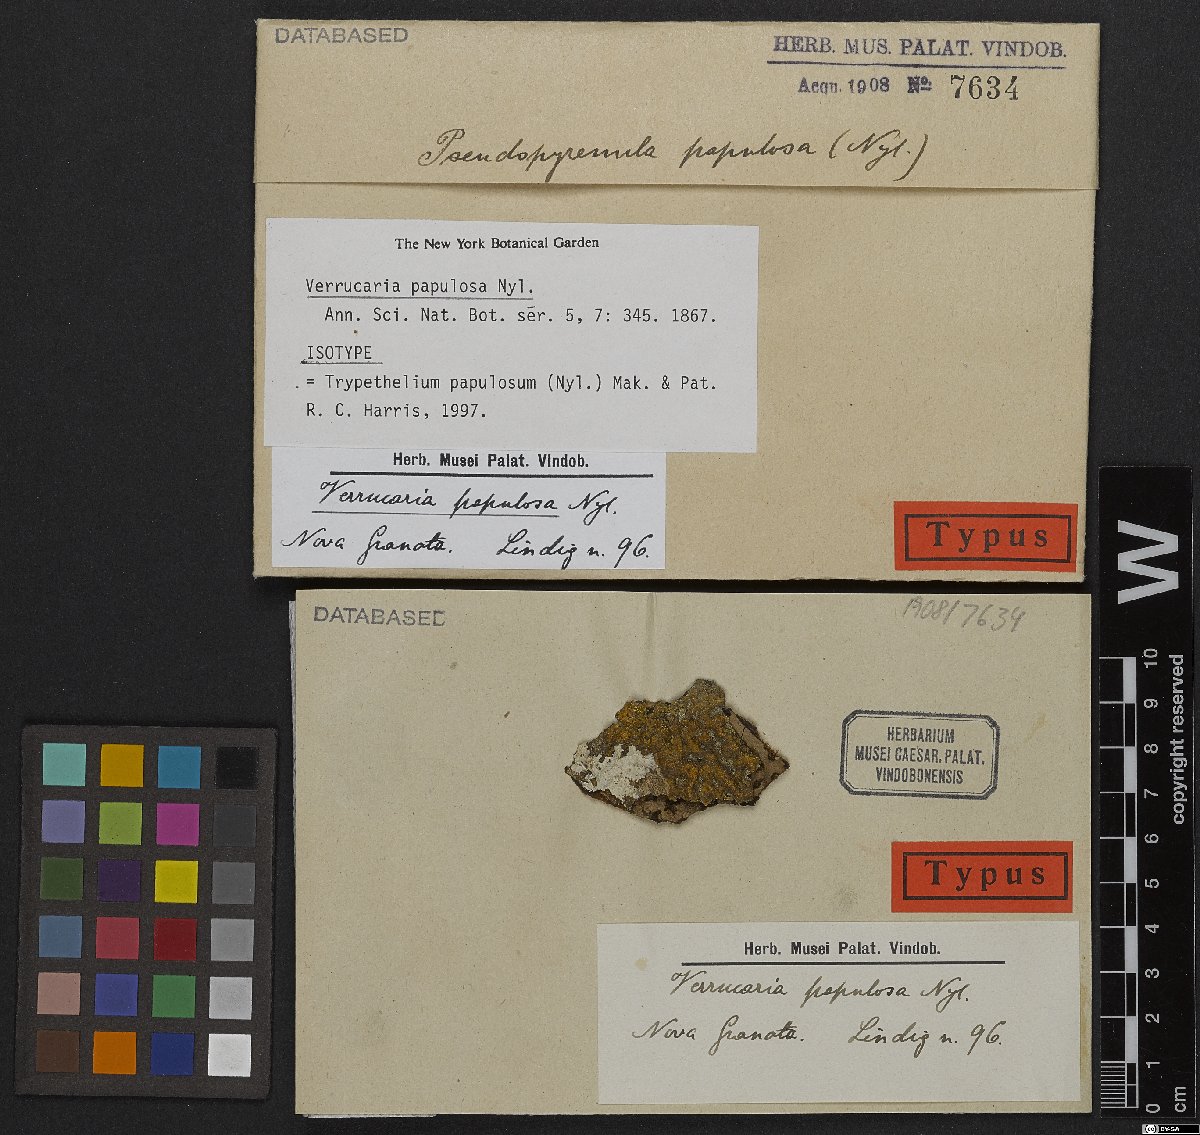 DATABASED
HERB. MUS. PALAT. VINDOB.
Acqu. 1908 No. 7634
Pseudopyrenula papulosa (Nyl.)
The New York Botanical Garden
Verrucaria papulosa Nyl.
Ann. Sci. Nat. Bot. sér. 5, 7: 345. 1867.
ISOTYPE
= Trypethelium papulosum (Nyl.) Mak. & Pat.
R. C. Harris, 1997.
Herb. Musei Palat. Vindob.
Verrucaria papulosa Nyl.
Nova Granata. Lindig n. 96.
Typus
DATABASED
1908/7634
HERBARIUM
MUSEI CAESAR. PALAT.
VINDOBONENSIS
Typus
Herb. Musei Palat. Vindob.
Verrucaria papulosa Nyl.
Nova Granata. Lindig n. 96.
W
0 1 2 3 4 5 6 7 8 9 10
cm
copyright reserved
CC BY-SA